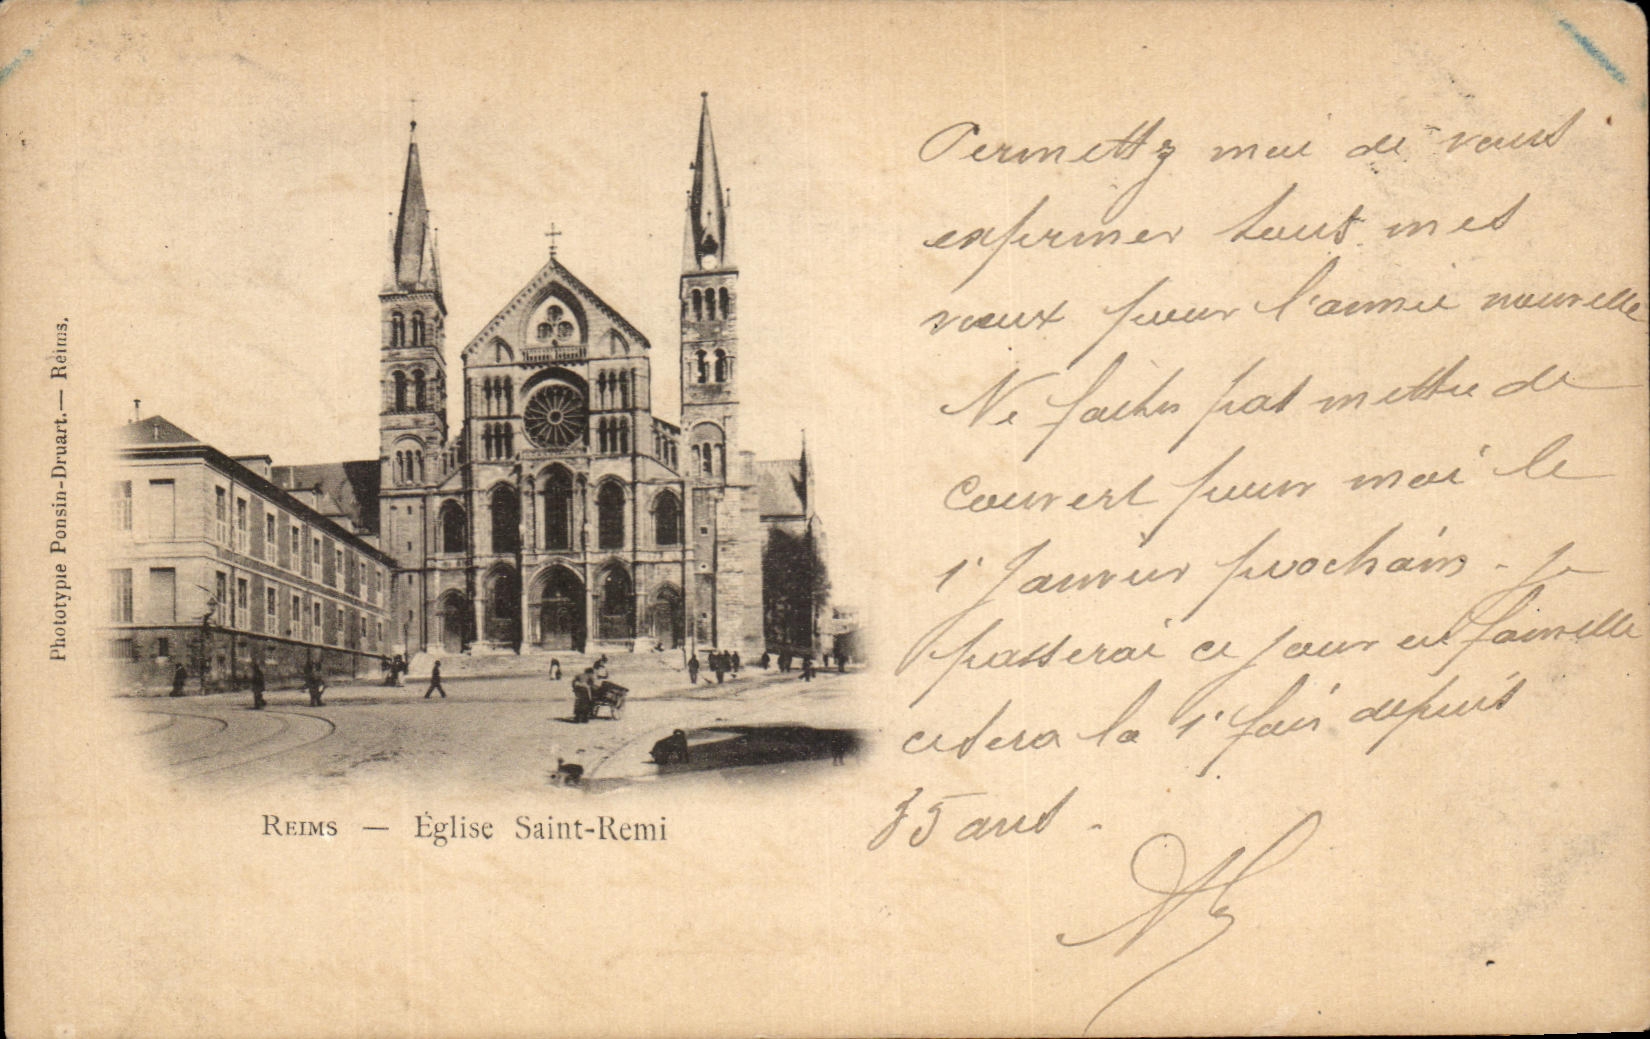 Permettez moi de vous
exprimer tous mes
vœux pour l'année nouvelle
Ne faites pas mettre de
couvert pour moi le
1r Janvier prochain - je
passerai ce jour en famille
ce sera la 1r fois depuis
35 ans.
Phototypie Ponsin-Druart. — Reims.
REIMS — Église Saint-Remi